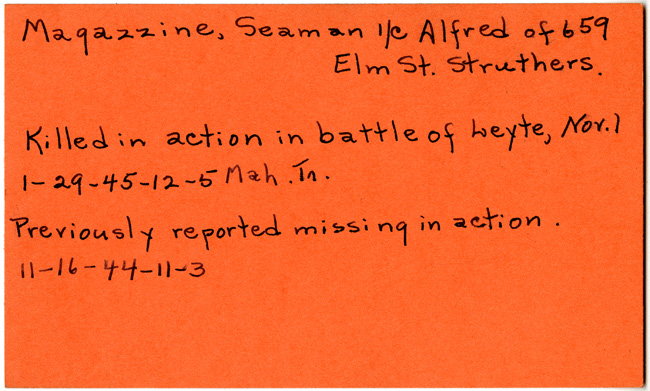 Magazzine, Seaman 1/c Alfred of 659
Elm St. Struthers.
Killed in action in battle of Leyte, Nov. 1
1-29-45-12-5 Mah. Tn.
Previously reported missing in action.
11-16-44-11-3